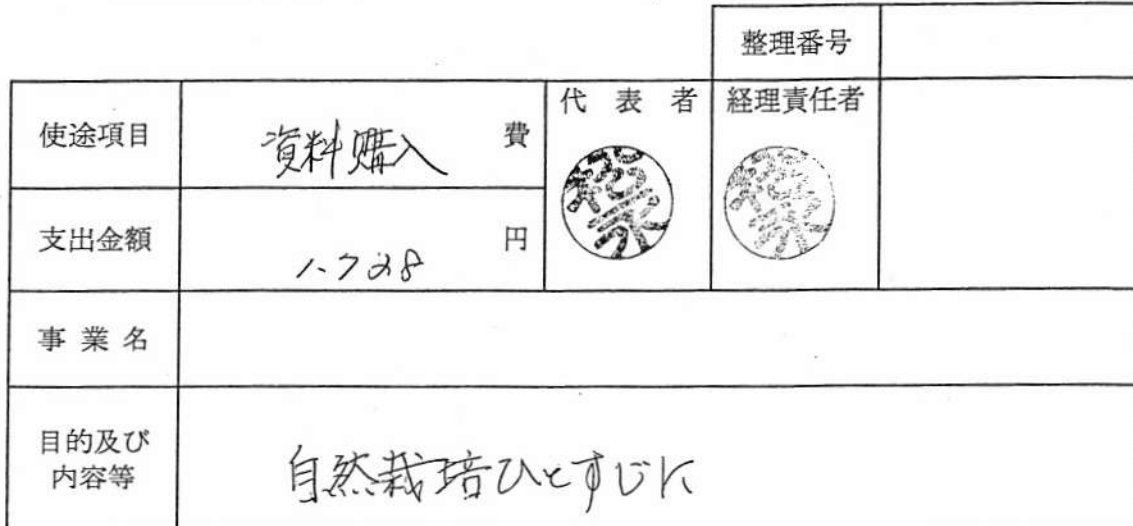 整理番号
使途項目 資料購入 費 代表者 経理責任者
支出金額 1.728 円
事業名
目的及び
内容等 自然栽培ひとすじに